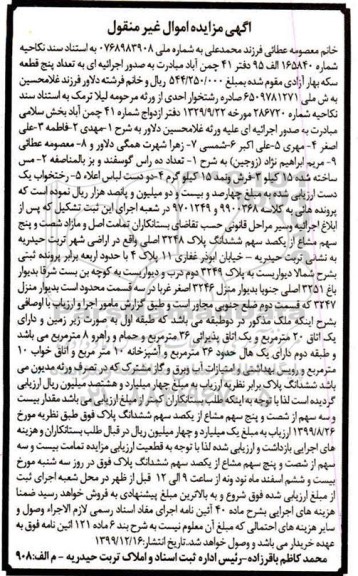 آگهی مزایده اموال غیر منقول
خانم معصومه عطائی فرزند محمدعلی به شماره ملی ۰۷۶۸۹۸۳۹۰۸ به استناد سند نکاحیه
شماره ۱۶۵۸۴۰ الف ۹۵ دفتر ۴۱ چمن آباد مبادرت به صدور اجرائیه ای به تعداد پنج قطعه
سکه بهار آزادی مقوم شده بمبلغ ۵۴۴/۲۵۰/۰۰۰ ریال و خانم فرشته دلاور فرزند غلامحسین
به ش ملی ۶۵۰۹۷۸۱۲۷۱ صادره رشتخوار احدی از ورثه مرحومه لیلا ترمک به استناد سند
نکاحیه شماره ۲۸۶۷۲۰ مورخه ۱۳۲۹/۹/۲۲ دفتر ازدواج شماره ۴۱ چمن آباد بخش سلامی
مبادرت به صدور اجرائیه ای علیه ورثه غلامحسین دلاور به شرح ۱- مهدی ۲-فاطمه ۳-علی
اصغر ۴- مهری ۵-علی اکبر ۶-شمسی ۷- زهرا شهرت همگی دلاور و ۸- معصومه عطائی
۹- مریم ابراهیم نژاد (زوجین) به شرح ۱- تعداد ده راس گوسفند و بز بالمناصفه ۲- مس
ساخته شده ۱۵ کیلو ۳-فرش و پلاس ۱۵ کیلو گرم ۴-دو دست لباس اعلاء ۵- رختخواب یک
دست ارزیابی شده به مبلغ چهارصد و بیست و دو میلیون و پانصد هزار ریال نموده است که
پرونده هائی به کلاسه ۹۹۰۰۳۶۸ و ۹۷۰۱۲۴۹ در شعبه اجرای این ثبت تشکیل که پس از
ابلاغ اجرائیه وسیر مراحل قانونی حسب تقاضای بستانکاران تمامت اصل و مازاد شصت و پنج
سهم مشاع از یکصد سهم ششدانگ پلاک ۳۲۴۸ اصلی واقع در اراضی شهر تربت حیدریه
به نشانی تربت حیدریه - خیابان ابوذر غفاری ۱۱ پلاک ۴ با حدود اربعه برابر پرونده ثبتی
بشرح شمالا دیواریست به پلاک ۳۲۴۹ دوم درب و دیواریست به کوچه بن بست شرقا بدیوار
باغ ۳۳۵۱ اصلی جنوبا بدیوار منزل ۳۲۴۶ اصغر غربا در سه قسمت محدود است بدیوار منزل
۳۲۴۷ که قسمت دوم ضلع جنوبی مجاور است و طبق گزارش مامور اجرا و ارزیاب با اوصافی
بشرح اینکه ملک مذکور در دوطبقه می باشد که طبقه اول به صورت زیر زمین و دارای
یک اتاق ۲۰ مترمربع و یک اتاق پذیرائی ۳۶ مترمربع و حمام و راهرو ۸ مترمربع می باشد
و طبقه دوم دارای یک هال حدود ۳۶ مترمربع و آشپزخانه ۱۰ متر مربع و اتاق خواب ۱۰
مترمربع و رویس بهداشتی و امتیازات آب وبرق و گاز مشترک که در تصرف ورثه مدیون می
باشد ششدانگ پلاک برابر نظریه ارزیاب به مبلغ چهار میلیارد و هشتصد میلیون ریال ارزیابی
گردیده است لذا با توجه به اینکه طلب بستانکاران کمتر از مبلغ ارزیابی می باشد مقدار بیست
و سه سهم از شصت و پنج سهم مشاع از یکصد سهم ششدانگ پلاک فوق طبق نظریه مورخ
۱۳۹۹/۸/۲۶ ارزیاب به مبلغ یک میلیارد و چهار میلیون ریال در قبال طلب بستانکاران و هزینه
های اجرایی بازداشت و ارزیابی شده لذا با توجه به قطعیت ارزیابی مزایده تمامت بیست و سه
سهم از شصت و پنج سهم مشاع از یکصد سهم ششدانگ پلاک فوق در روز سه شنبه مورخ
بیست و ششم اسفند ماه نود ونه از ساعت ۹ الی ۱۲ قبل از ظهر در محل شعبه اجرای ثبت
از مبلغ ارزیابی شده فوق شروع و به بالاترین مبلغ پیشنهادی به فروش خواهد رسید ضمنا
هزینه های اجرایی بشرح ماده ۴۰ آئین نامه اجرای مفاد اسناد رسمی لازم الاجراء وصول و
سایر هزینه های احتمالی که مبلغ آن معلوم نیست به شرح بند ۶ ماده ۱۲۱ آئین نامه فوق به
عهده خریدار می باشد و وصول خواهد شد.تاریخ انتشار:۱۳۹۹/۱۲/۱۶
محمد کاظم باقرزاده-رئیس اداره ثبت اسناد و املاک تربت حیدریه - م الف:۹۰۸